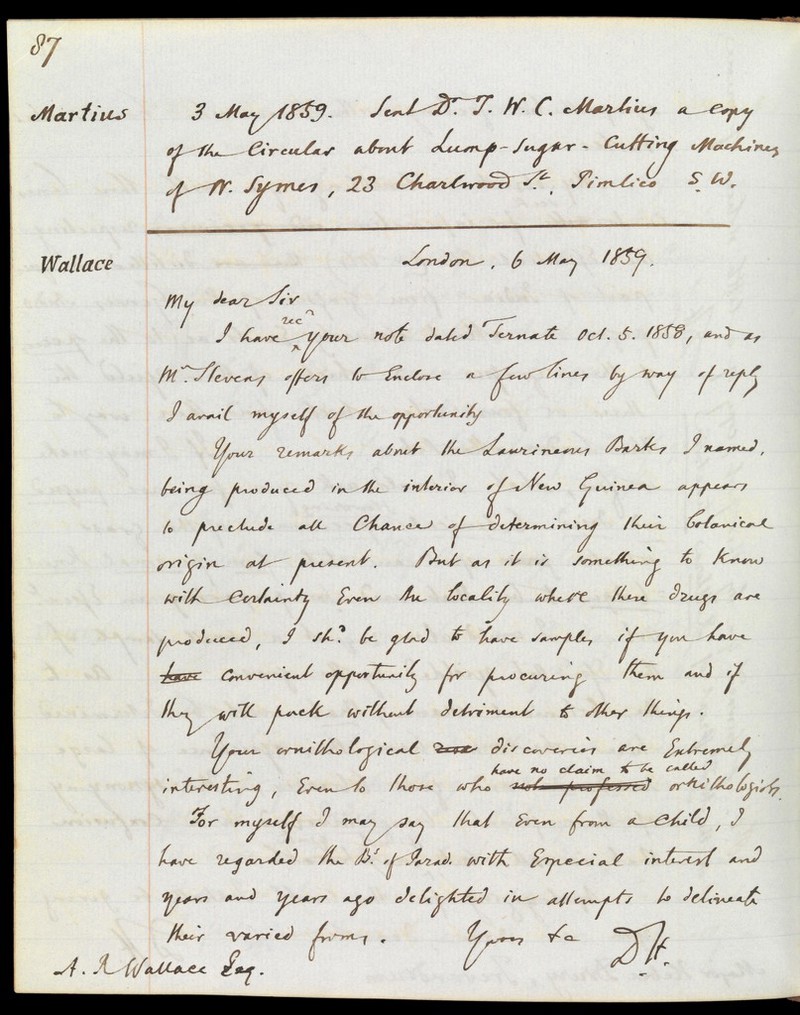 87
Martius
3 May 1859. Sent Dr. T. W. C. Martius a copy
of the Circular about Lump-Sugar-Cutting Machines
of W. Symes, 23 Charlwood St., Pimlico S.W.
Wallace
London, 6 May 1859.
My dear Sir
I have recd your note dated Ternate Oct. 5. 1858, and as
Mr. Stevens offers to Enclose a few lines by way of reply
I avail myself of the opportunity
Your remarks about the Laurineous Barks I named,
being produced in the interior of New Guinea appears
to preclude all Chance of determining their botanical
origin at present. But as it is something to Know
with Certainty Even the locality where these drugs are
produced, I shd. be glad to have samples if you have
have convenient opportunity for procuring them and if
they will pack without detriment to other things.
Your ornithological discoveries are Extremely
interesting, Even to those who have no claim to be called not professed ornithologists.
For myself I may say that Even from a Child, I
have regarded the Bs. of Parad. with Especial interest and
years and years ago delighted in attempts to delineate
their varied forms. Yours &c DH.
A. R Wallace Esq.